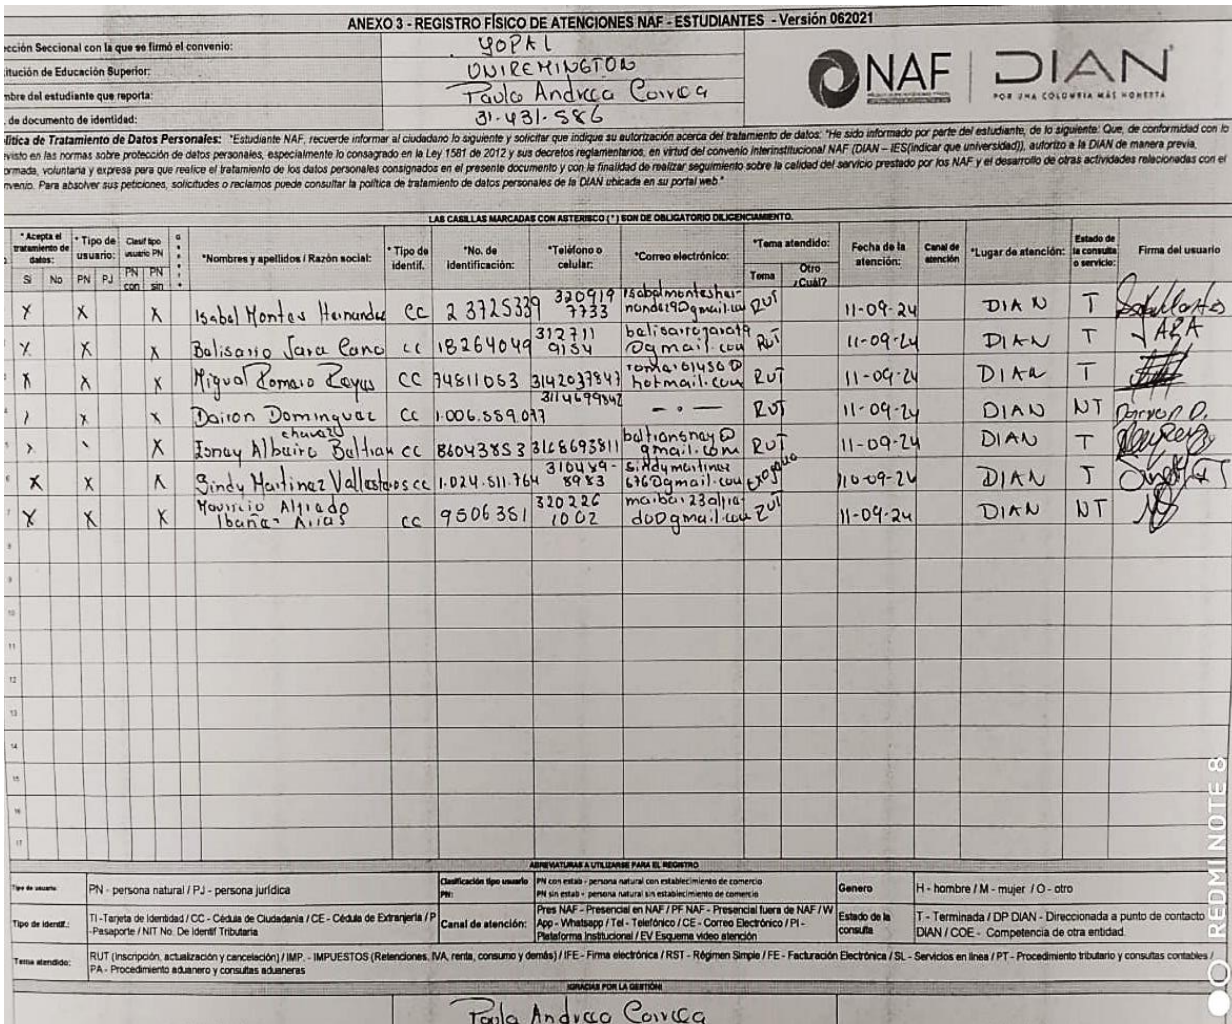 ANEXO 3 - REGISTRO FÍSICO DE ATENCIONES NAF - ESTUDIANTES - Versión 062021
ección Seccional con la que se firmó el convenio: YOPAL
titución de Educación Superior: UNIREMINGTON
mbre del estudiante que reporta: Paula Andrea Correa
. de documento de identidad: 31.431.586
NAF DIAN
POR UNA COLOMBIA MÁS HONESTA
lítica de Tratamiento de Datos Personales: "Estudiante NAF, recuerde informar al ciudadano lo siguiente y solicitar que indique su autorización acerca del tratamiento de datos: "He sido informado por parte del estudiante, de lo siguiente: Que, de conformidad con lo
evisto en las normas sobre protección de datos personales, especialmente lo consagrado en la Ley 1581 de 2012 y sus decretos reglamentarios, en virtud del convenio interinstitucional NAF (DIAN – IES(indicar que universidad)), autorizo a la DIAN de manera previa,
ormada, voluntaria y expresa para que realice el tratamiento de los datos personales consignados en el presente documento y con la finalidad de realizar seguimiento sobre la calidad del servicio prestado por los NAF y el desarrollo de otras actividades relacionadas con el
nvenio. Para absolver sus peticiones, solicitudes o reclamos puede consultar la política de tratamiento de datos personales de la DIAN ubicada en su portal web."
LAS CASILLAS MARCADAS CON ASTERISCO (*) SON DE OBLIGATORIO DILIGENCIAMIENTO.
* Acepta el tratamiento de datos: * Tipo de usuario: Clasif tipo usuario PN *Nombres y apellidos / Razón social: * Tipo de identif. *No. de identificación: *Teléfono o celular: *Correo electrónico: *Tema atendido: Fecha de la atención: Canal de atención *Lugar de atención: Estado de la consulta o servicio: Firma del usuario
Si No PN PJ PN con PN sin Tema Otro ¿Cuál?
X X X Isabel Montes Hernandez CC 23725339 320919 7733 isabelmontesher-nandez9@gmail.com RUT 11-09-24 DIAN T
X X X Balisario Jara Cano CC 18264049 312711 9154 balisariojarata@gmail.com RUT 11-09-24 DIAN T JARA
X X X Miguel Romero Reyes CC 74811063 3142037847 hotmail.com RUT 11-09-24 DIAN
X X Dairon Dominguez CC 1.006.559.077 3114699842 — . — RUT 11-09-24 DIAN NT Dairon D.
X Esnay Albeiro Beltran chavez CC 86043853 3168693811 baltransnay@gmail.com RUT 11-09-24 DIAN T
X X X Sindy Martinez Vallesteros CC 1.024.511.764 310489-8983 sindymartinez676@gmail.com 10-09-24 DIAN T
X X X Mauricio Alfredo Ibañez Arias CC 9506351 320226 1002 maibar23alfredo@gmail.com RUT 11-09-24 DIAN NT
8
9
10
11
12
13
14
15
16
17
ABREVIATURAS A UTILIZARSE PARA EL REGISTRO
Tipo de usuario: PN - persona natural / PJ - persona jurídica Clasificación tipo usuario PN: PN con estab - persona natural con establecimiento de comercio
PN sin estab - persona natural sin establecimiento de comercio Genero H - hombre / M - mujer / O - otro
Tipo de identif.: TI -Tarjeta de Identidad / CC - Cédula de Ciudadanía / CE - Cédula de Extranjería / P -Pasaporte / NIT No. De Identif Tributaria Canal de atención: Pres NAF - Presencial en NAF / PF NAF - Presencial fuera de NAF / W App - Whatsapp / Tel - Telefónico / CE - Correo Electrónico / PI - Plataforma Institucional / EV Esquema video atención Estado de la consulta T - Terminada / DP DIAN - Direccionada a punto de contacto DIAN / COE - Competencia de otra entidad.
Tema atendido: RUT (Inscripción, actualización y cancelación) / IMP. - IMPUESTOS (Retenciones, IVA, renta, consumo y demás) / IFE - Firma electrónica / RST - Régimen Simple / FE - Facturación Electrónica / SL - Servicios en línea / PT - Procedimiento tributario y consultas contables /
PA - Procedimiento aduanero y consultas aduaneras
¡GRACIAS POR LA GESTIÓN!
Paula Andrea Correa
REDMI NOTE 8